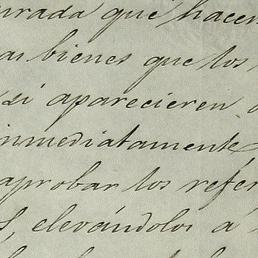 que hacen
bienes que los
si aparecieren
inmediatamente
aprobar los refer
elevándolos á